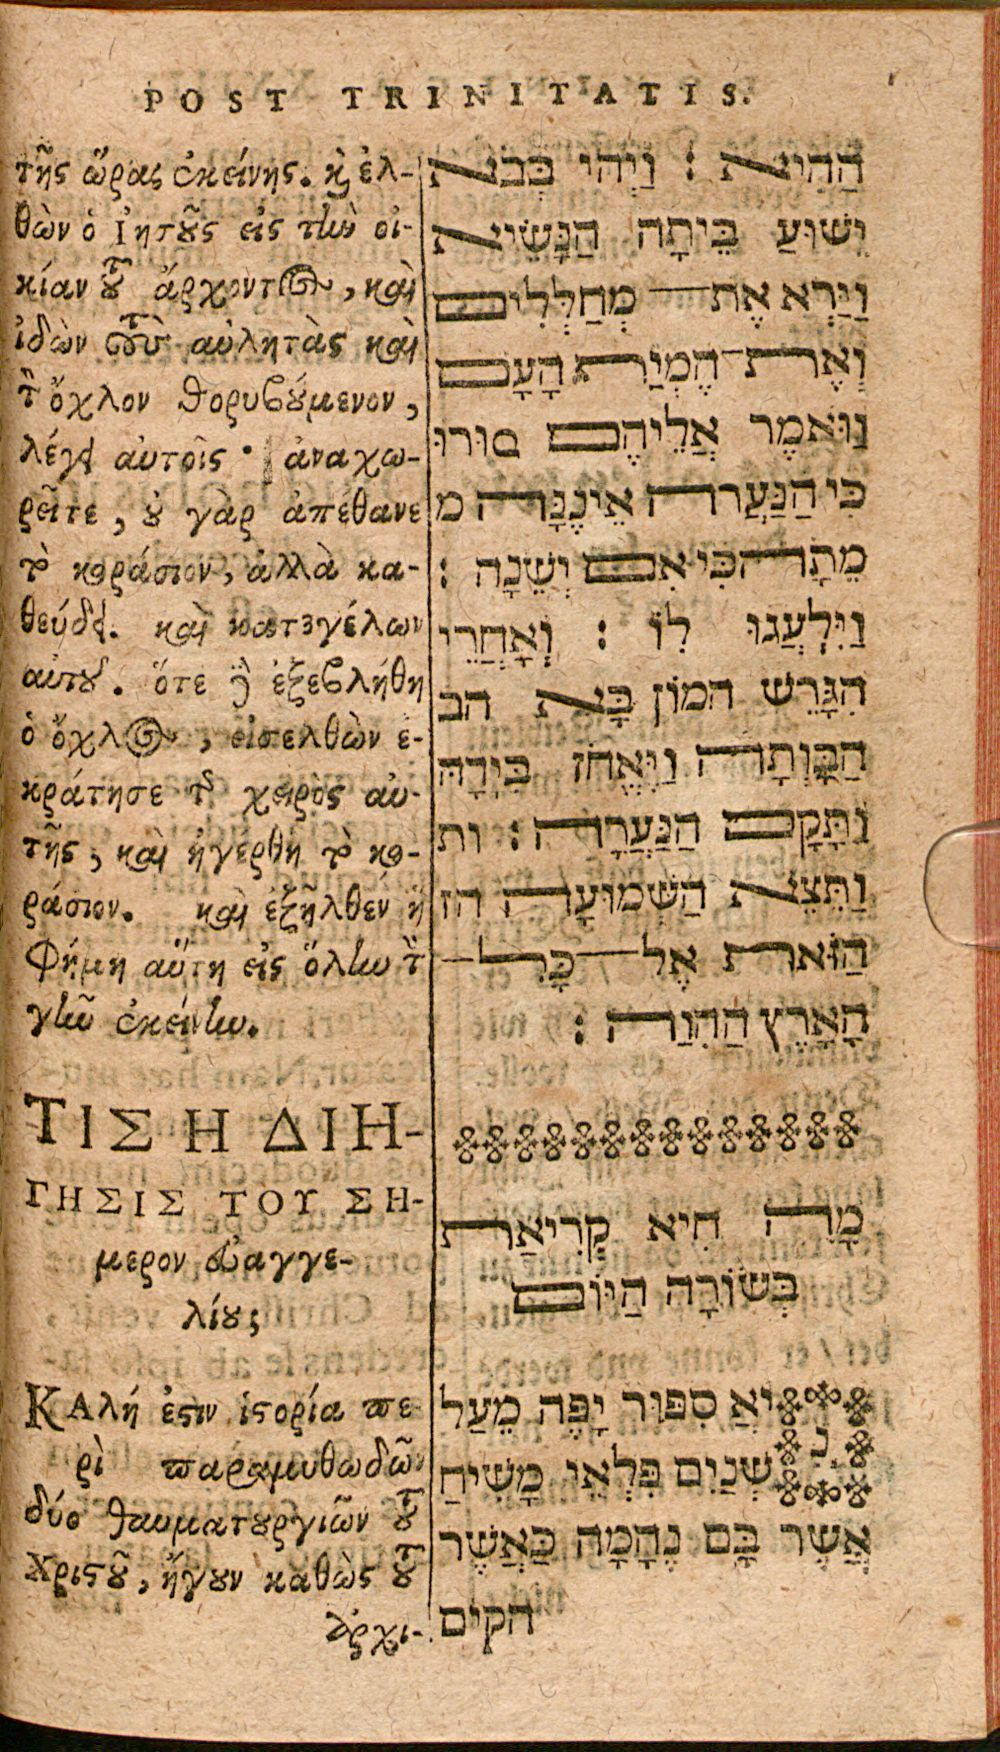 POST TRINITATIS.
τῆς ὥρας ἐκείνης. καὶ ἐλ-
θὼν ὁ Ἰησοῦς εἰς τὴν οἰ-
κίαν τοῦ ἄρχοντος, καὶ
ἰδὼν τοὺς αὐλητὰς καὶ
τὸν ὄχλον θορυβούμενον,
λέγει αὐτοῖς· ἀναχω-
ρεῖτε, οὐ γὰρ ἀπέθανε
τὸ κοράσιον, ἀλλὰ κα-
θεύδει. καὶ κατεγέλων
αὐτοῦ. ὅτε δὲ ἐξεβλήθη
ὁ ὄχλος, εἰσελθὼν ἐ-
κράτησε τῆς χειρὸς αὐ-
τῆς, καὶ ἠγέρθη τὸ κο-
ράσιον. καὶ ἐξῆλθεν ἡ
Φήμη αὕτη εἰς ὅλην τὴν
γῆν ἐκείνην.
ΤΙΣ Η ΔΙΗ-
ΓΗΣΙΣ ΤΟΥ ΣΗ-
μερον εὐαγγε-
λίου;
ΚΑλή ἐστιν ἱστορία πε-
ρὶ παραμυθωδῶν
δύο θαυματουργιῶν τοῦ
Χριστοῦ, ἤγουν καθὼς τοῦ
ἀρχι-
הַהִיא : וַיְהִי בְּבֹא
יְשׁוּעַ בֵּיתָה הַנָּשִׂיא
וַיַּרְא אֶת־ מְחַלְּלִים
וְאֶת־הֶמְיַת הָעָם
וַוּאֹמֶר אֲלֵיהֶם סוּרוּ
כִּי הַנַּעֲרָה אֵינֶנָּה מ
מֵתָה כִּי אִם יְשֵׁנָה :
וַיִּלְעֲגוּ לוֹ : וְאָחֲרֵי
הִגָּרֵשׁ הִמוֹן בָּא הב
הַבָּיְתָה וַיֶּאֱחֹז בִּיְדָהּ
וַתָּקָם הַנַּעֲרָה : ות
וַתֵּצֵא הַשְּׁמוּעָה הז
הַזֹּאת אֶל־ כָּל־
הָאָרֶץ הַהִוַא :
מָה הִיא קְרִיאַת
בְּשׂוֹרָה הַיּוֹם
נִ יאַ סִפּוּר יָפֶה מֵעַל
שְׁנַיִם פִּלְאֵי מָשִׁיחַ
אֲשֶׁר בָּם נֶהָמָה כַּאֲשֶׁר
הקים